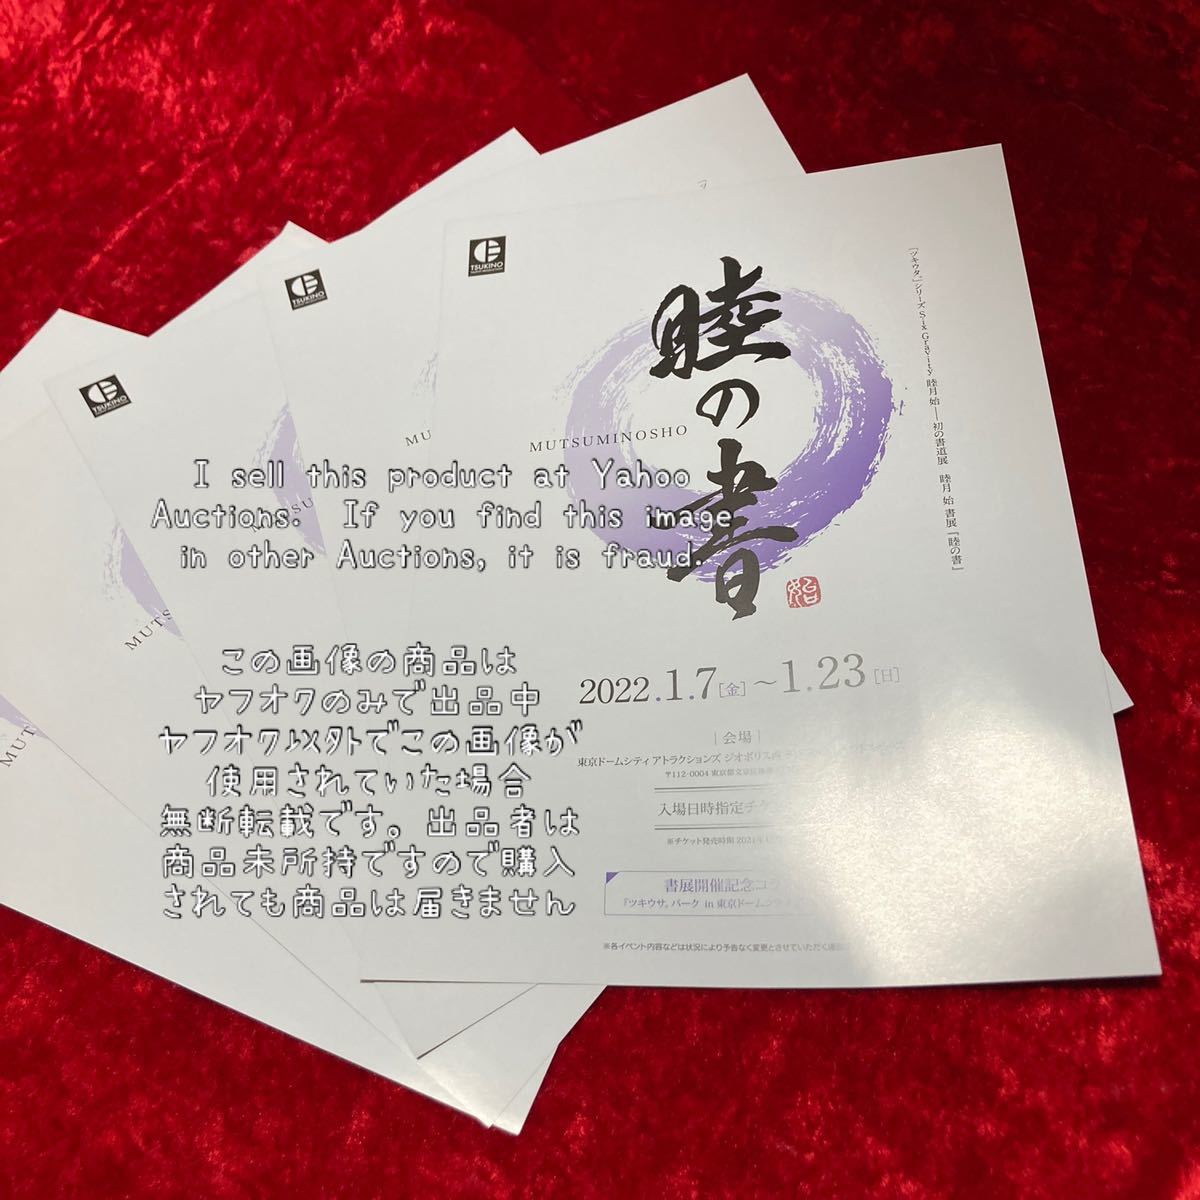 TSUKINO
TSUKINO
TSUKINO
睦の書
MUTSUMINOSHO
「ツキウタ。」シリーズ Six Gravity 睦月 始──初の書道展 睦月 始 書展『睦の書』
始
2022.1.7[金]~1.23[日]
|会場|
東京ドームシティ アトラクションズ ジオポリス内
〒112-0004 東京都文京区後楽
入場日時指定チケ
※チケット発売時期 2021年
書展開催記念コラ
『ツキウサ。パーク in 東京ドームシティ ア
※各イベント内容などは状況により予告なく変更とさせていただく場合
MU
MUTS
MUT
I sell this product at Yahoo
Auctions. If you find this image
in other Auctions, it is fraud.
この画像の商品は
ヤフオクのみで出品中
ヤフオク以外でこの画像が
使用されていた場合
無断転載です。出品者は
商品未所持ですので購入
されても商品は届きません